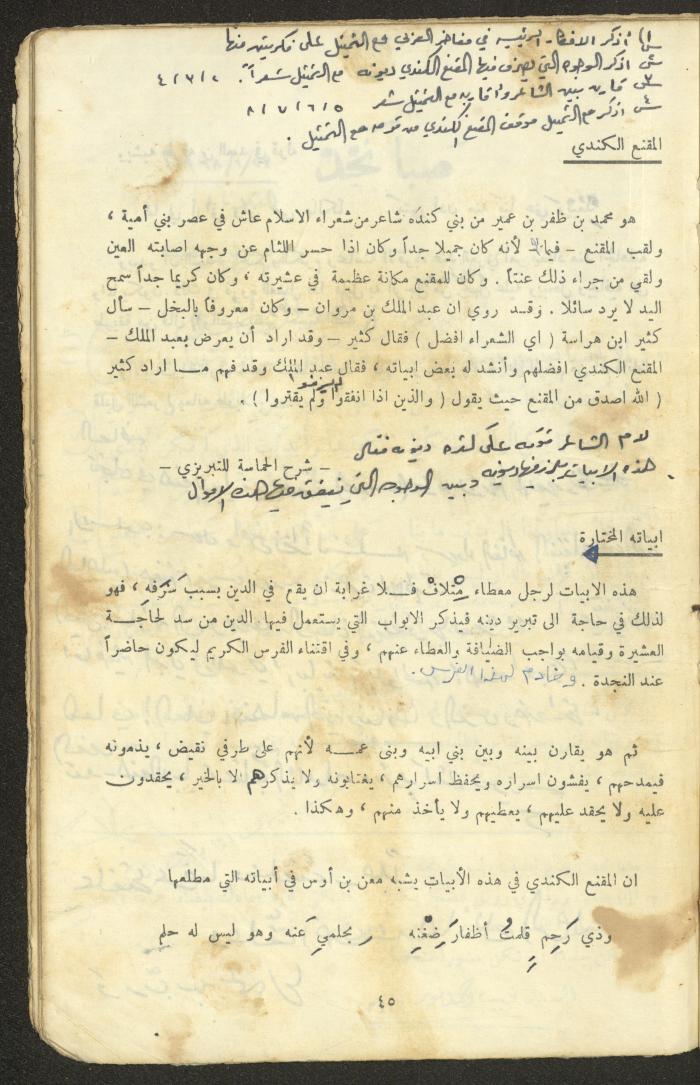 س١) أذكر الافكار الرئيسه في مفاخر العربي مع التمثيل على فكرتين منها
س٢ اذكر الوجوه التي يصرف فيها المقنع الكندي ديونه مع التمثيل شعراً. ٢ / ٣ / ٤
س٣ قارن بين الشاعر وأقاربه مع التمثيل شعر ٥ / ٦ / ٧ / ٨
س٤ اذكر مع التمثيل موقف المقنع الكندي من قومه مع التمثيل .
المقنع الكندي
هو محمد بن ظفر بن عمير من بني كنده شاعر من شعراء الاسلام عاش في عصر بني أمية ،
ولقب المقنع – فيما – لأنه كان جميلا جداً وكان اذا حسر اللثام عن وجهه اصابته العين
ولقي من جراء ذلك عنتاً . وكان للمقنع مكانة عظيمة في عشيرته ، وكان كريما جداً سمح
اليد لا يرد سائلا . وقد روي ان عبد الملك بن مروان – وكان معروفاً بالبخل – سأل
كثير ابن هراسة ( اي الشعراء افضل ) فقال كثير – وقد اراد أن يعرض بعبد الملك –
المقنع الكندي افضلهم وأنشد له بعض ابياته ، فقال عبد الملك وقد فهم ما اراد كثير
( الله اصدق من المقنع حيث يقول ( والذين اذا انفقوا لم يسرفوا ولم يقتروا ) .
لام الشاعر قومه على كثرة ديونه فقال
هذه الابيات ديونه وبين الوجوه التي ينفق فيها هذه الاموال
– شرح الحماسة للتبريزي –
ابياته المختارة
هذه الابيات لرجل معطاء مِتلافْ فلا غرابة ان يقع في الدين بسبب سَرَفه ، فهو
لذلك في حاجة الى تبرير دينه فيذكر الابواب التي يستعمل فيها الدين من سد لحاجة
العشيرة وقيامه بواجب الضيافة والعطاء عنهم ، وفي اقتناء الفرس الكريم ليكون حاضراً
عند النجدة . وخادم لهذا الفرس .
ثم هو يقارن بينه وبين بني ابيه وبنى عمه لأنهم على طرفي نقيض ، يذمونه
فيمدحهم ، يفشون اسراره ويحفظ اسرارهم ، يغتابونه ولا يذكرهم الا بالخير ، يحقدون
عليه ولا يحقد عليهم ، يعطيهم ولا يأخذ منهم ، وهكذا .
ان المقنع الكندي في هذه الأبيات يشبه معن بن أوس في أبياته التي مطلعها
وذي رَحِمٍ قلمتُ أظفارَ ضغْنِه بحلمي عَنه وهو ليس له حلم
٤٥